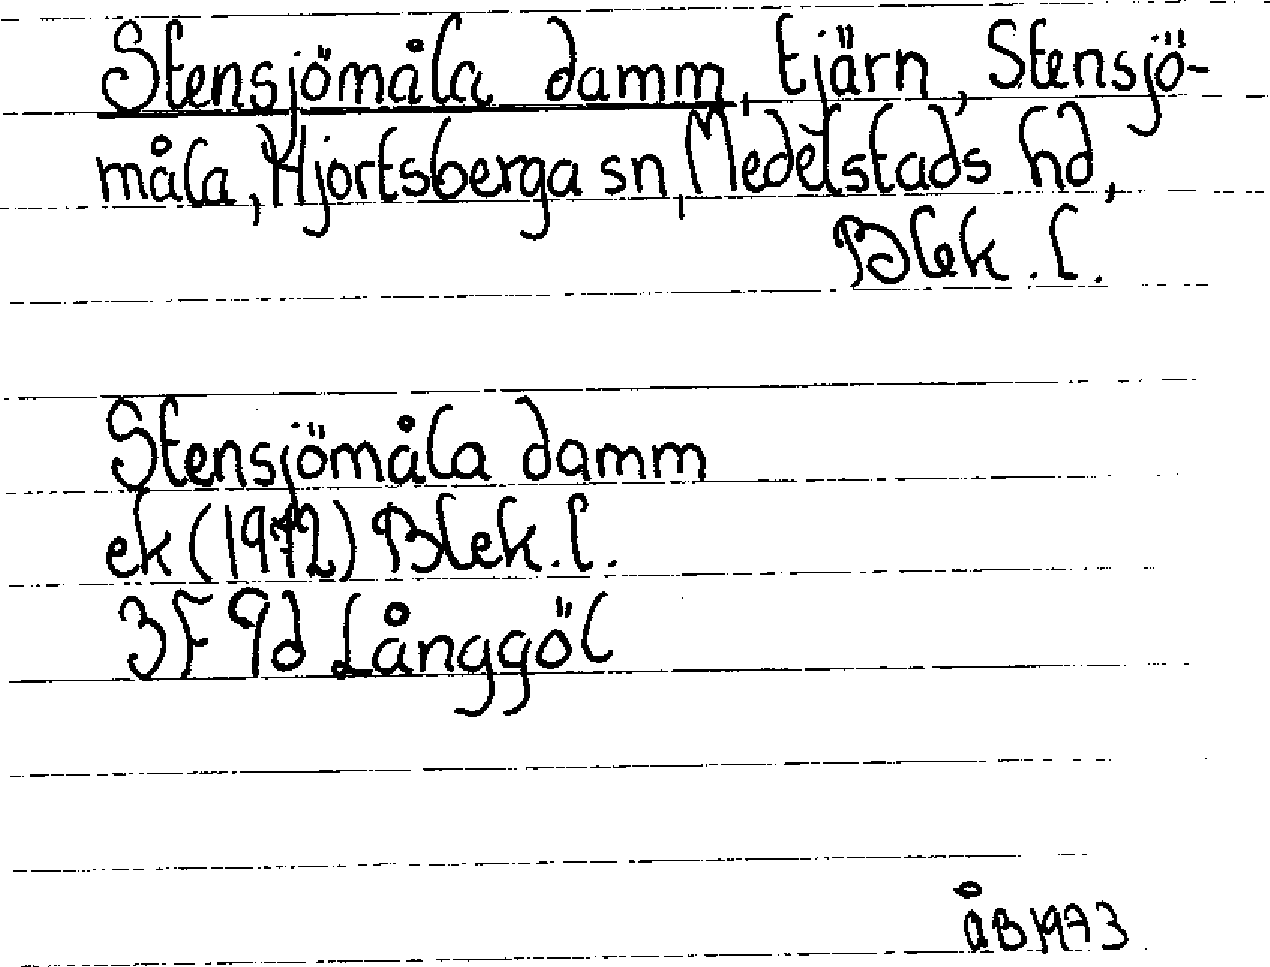 Stensjömåla damm, tjärn, Stensjö-
måla, Hjortsberga sn, Medelstads hd,
Blek. l.
Stensjömåla damm
ek (1972) Blek. l.
3F 9d Långgöl
ÅB 1973